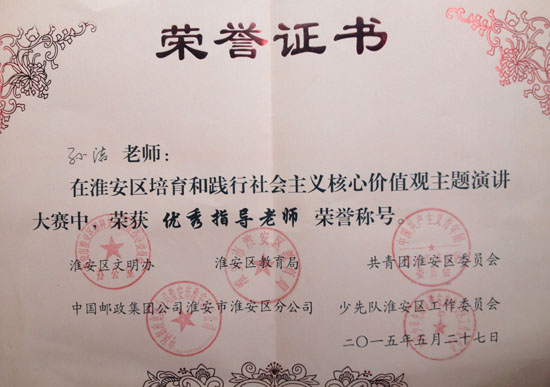 荣誉证书
孙洁 老师：
在淮安区培育和践行社会主义核心价值观主题演讲
大赛中 荣获 优秀指导老师 荣誉称号。
淮安区文明办 淮安区教育局 共青团淮安区委员会
中国邮政集团公司淮安市淮安区分公司 少先队淮安区工作委员会
二〇一五年五月二十七日